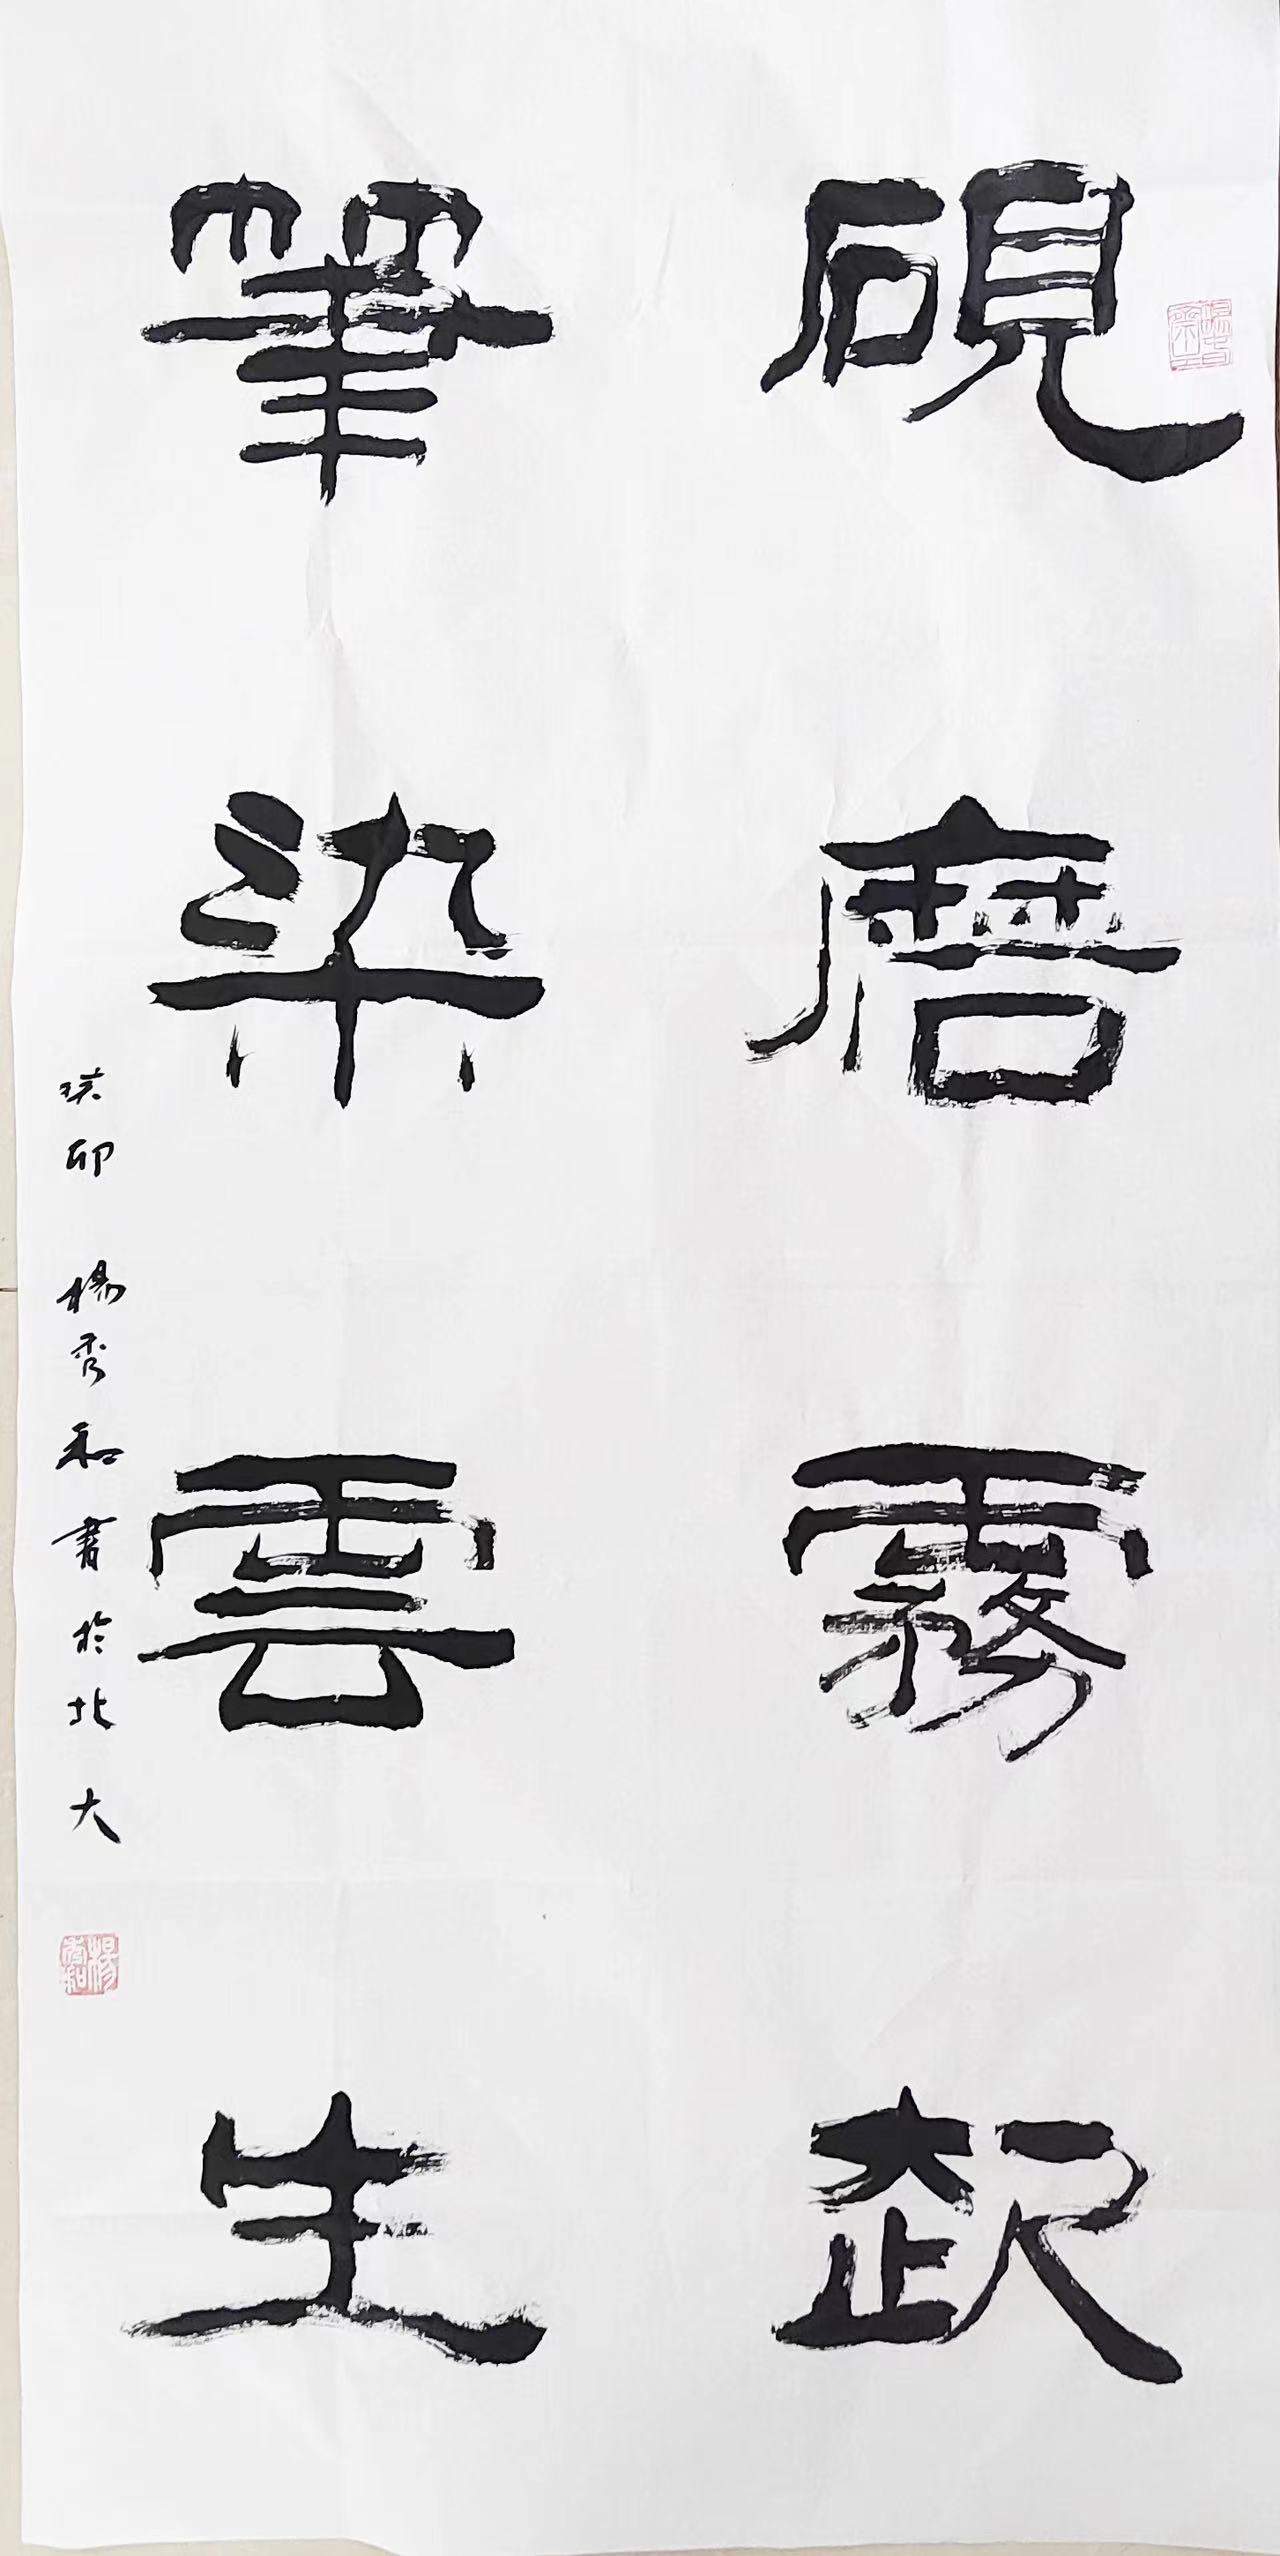 硯磨霧起
筆染雲生
癸卯 楊秀和書於北大
楊秀和